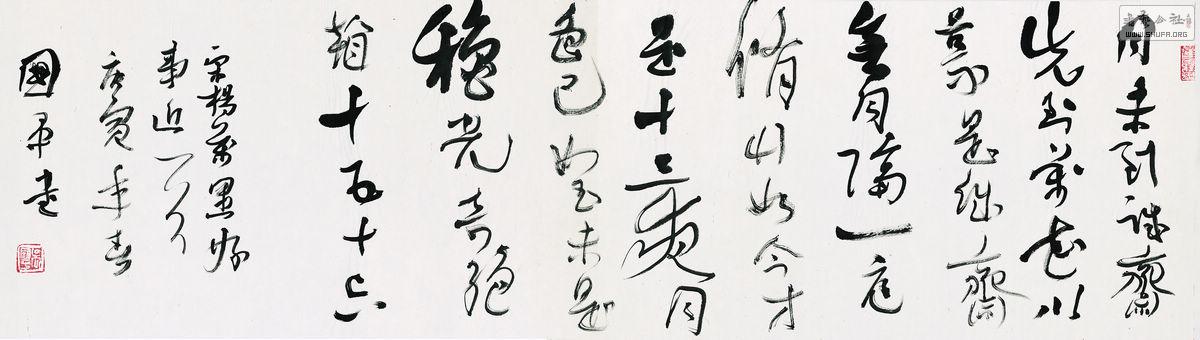 月未到誠齋
先到萬花川
谷不是誠齋
無月隔一庭
脩竹如今才
是十三夜月
色已如玉未是
穐光奇絶
看十五十六
宋楊萬里好
事近一首
庚寅年春
國書
书法公社
WWW.SHUFA.ORG